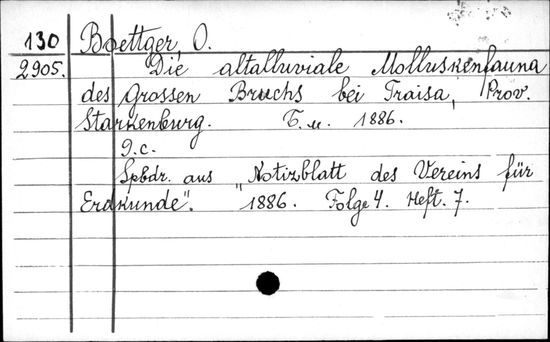 130 Boettger, O.
2905. Die altalluviale Molluskenfauna
des Grossen Bruchs bei Traisa, Prov.
Starkenburg. T. u. 1886.
9.c.
Spbdr. aus "Notizblatt des Vereins für
Erdkunde". 1886. Folge 4. Heft. 7.